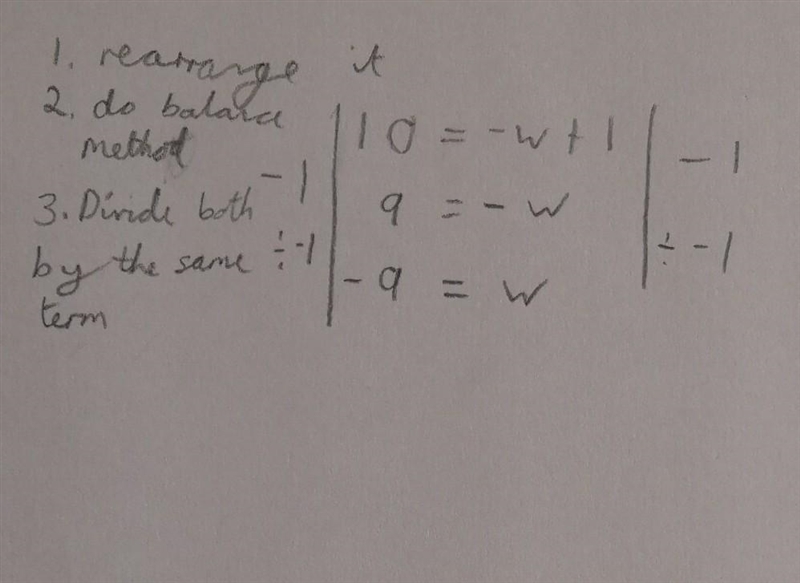 1. rearrange it
2. do balance
method
3. Divide both
by the same
term
10 = -w + 1
-1 -1
9 = - w
÷-1 ÷ -1
-9 = w